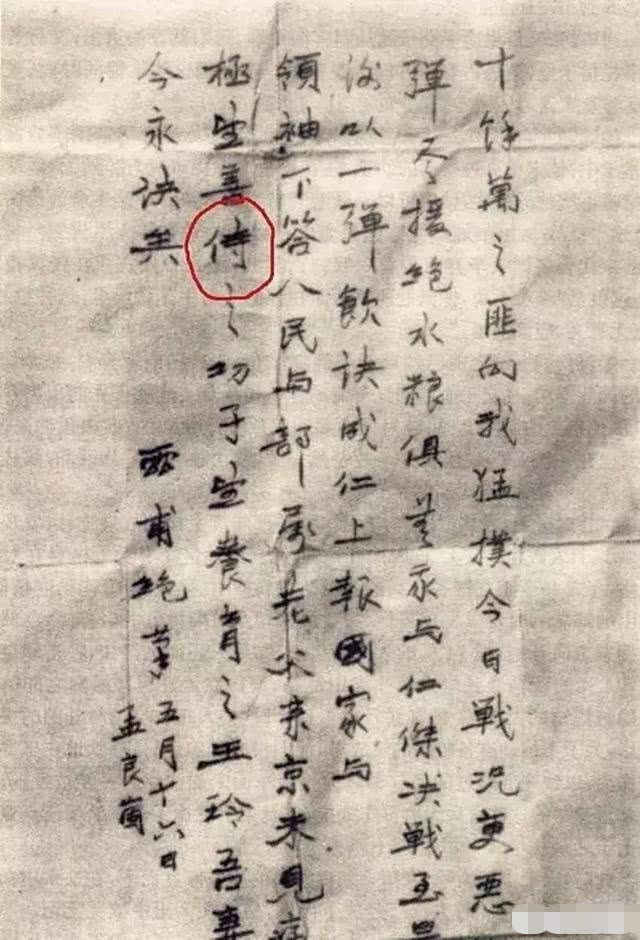 十馀萬之匪向我猛撲今日戰况更恶
彈尽援绝水粮俱無我与仁傑决戰至最
後以一彈飲訣成仁上報國家与
領袖下答人民与部属老父来京未見痛
極望善待之幼子望養育之玉玲吾妻
今永訣矣
灵甫绝筆五月十六日
孟良崮